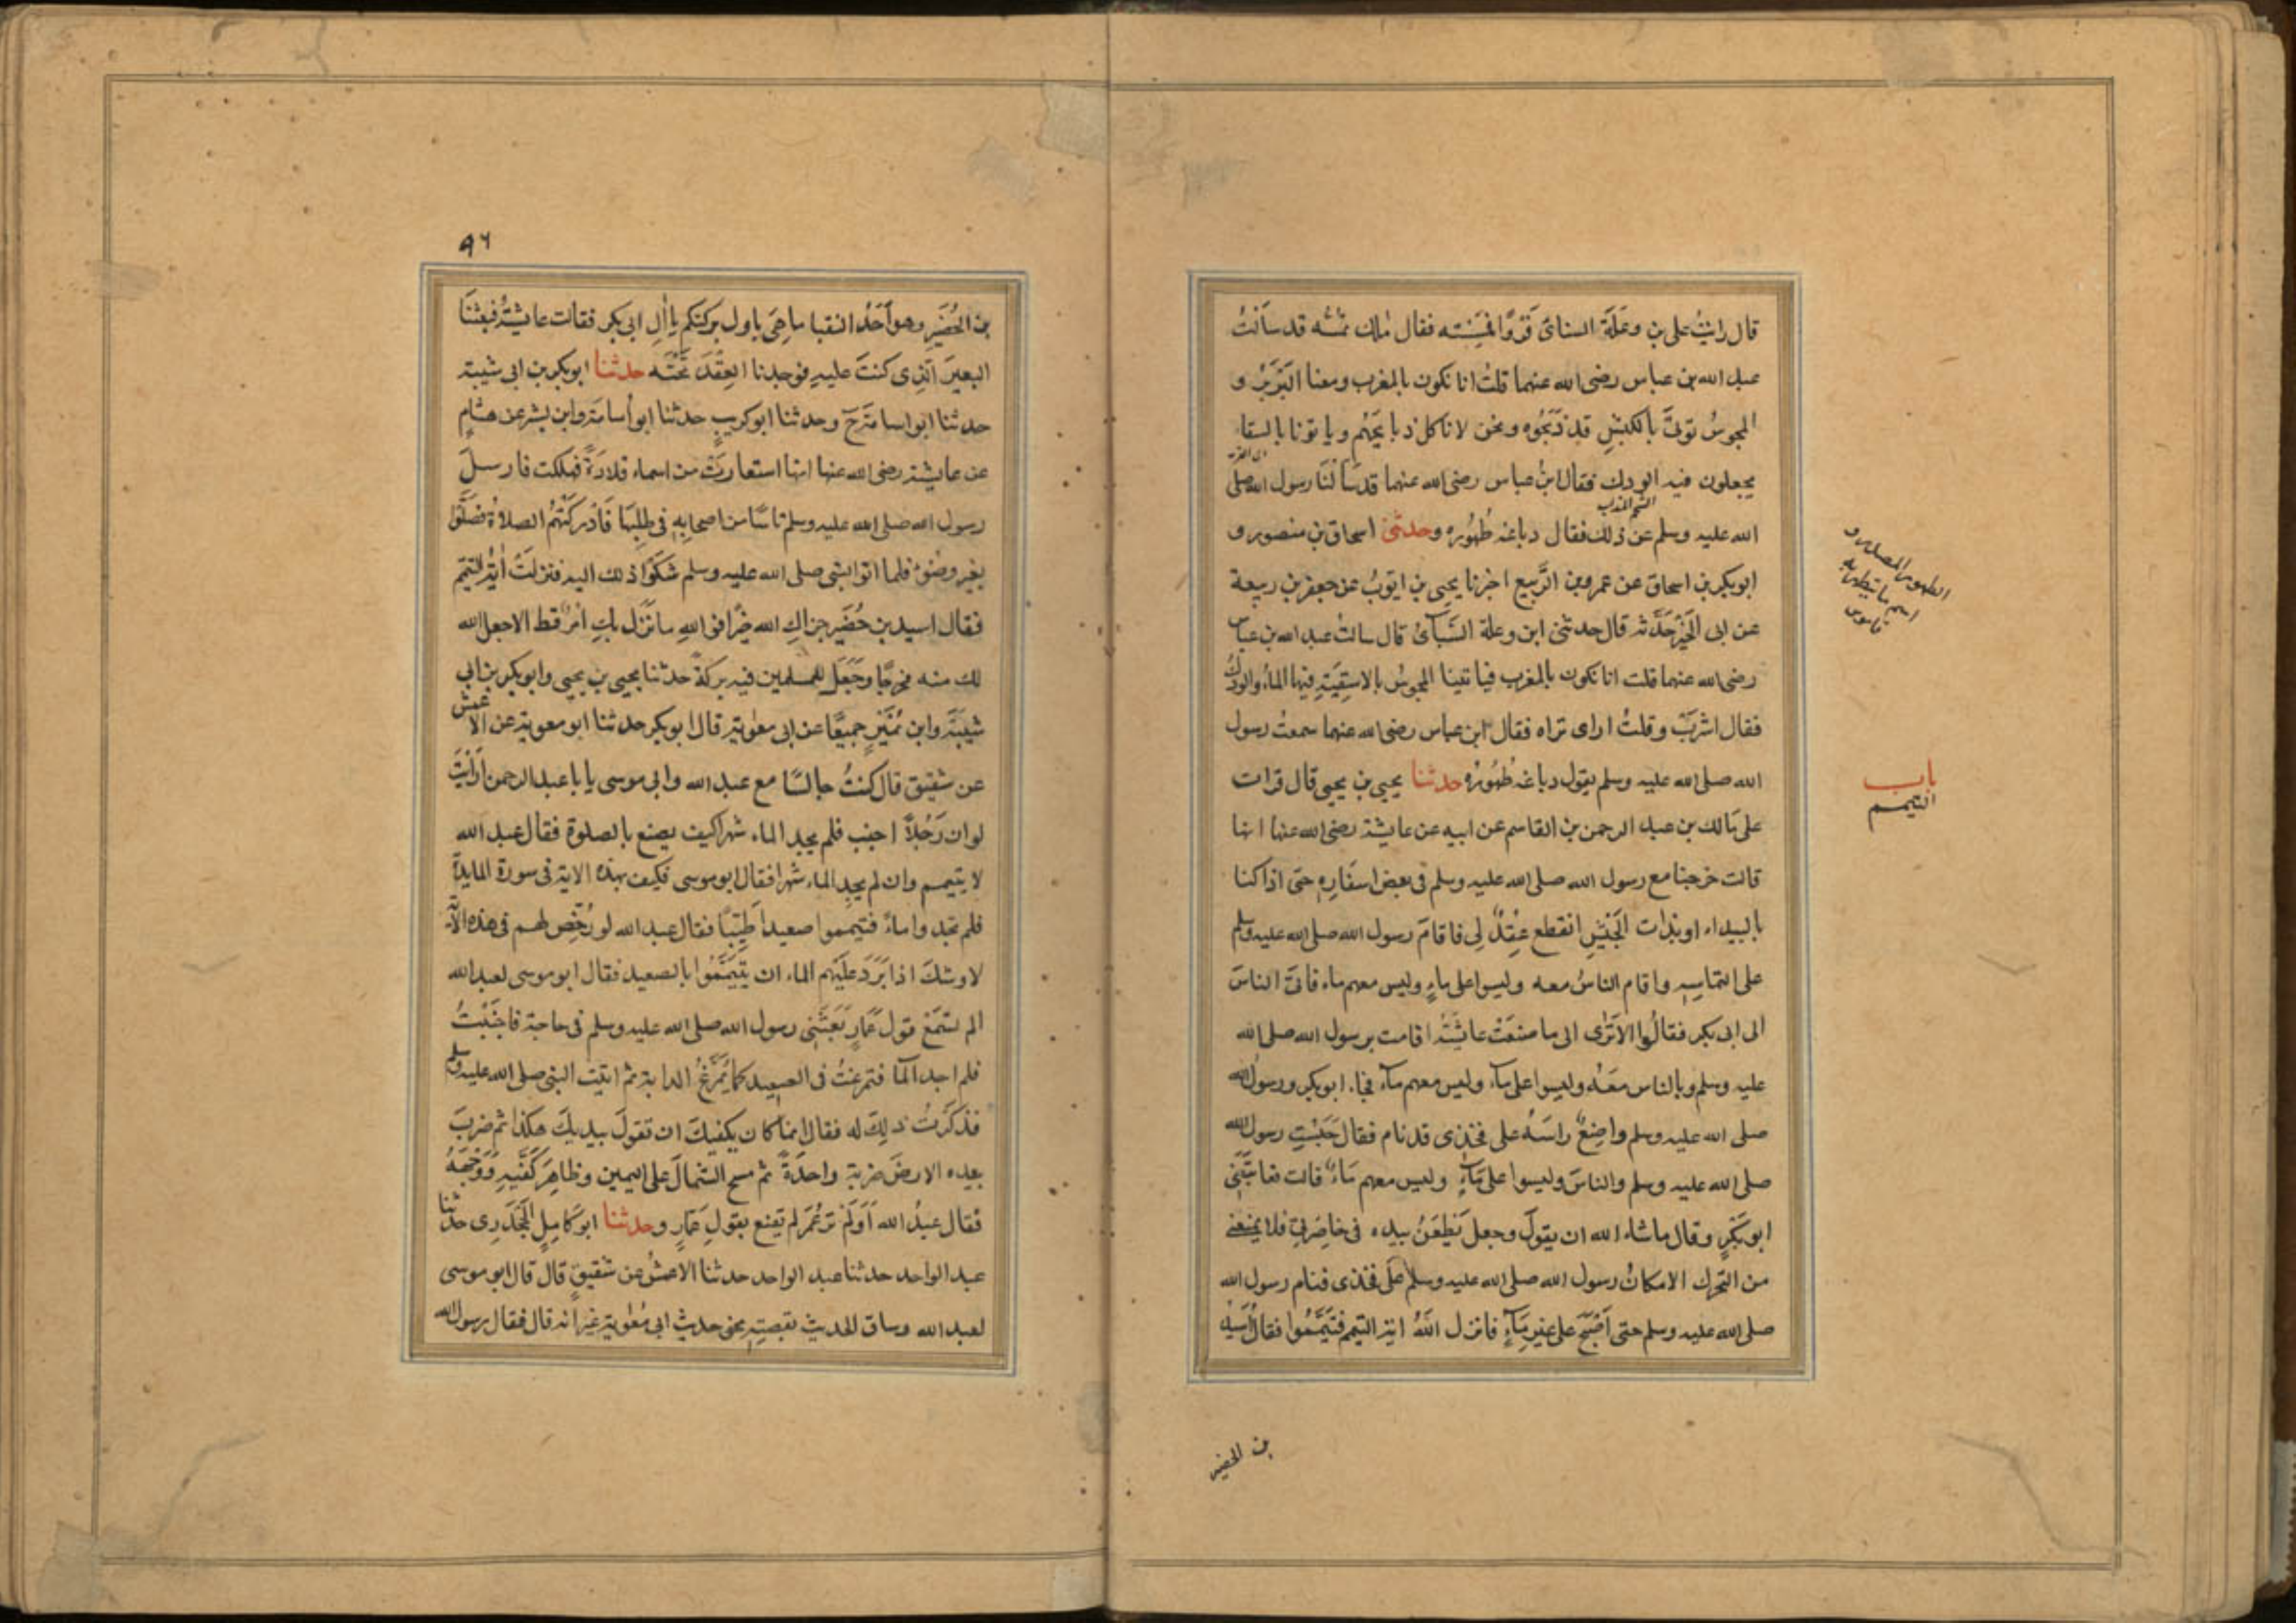 قال رايتُ على بن وعلة السبائى فَرْوًا فمَسِسْته فقال مالك تمسّه قد سألتُ
عبد الله بن عباس رضى الله عنهما قلتُ انا نكون بالمغرب ومعنا البَرْبَرُ و
المجوسُ نوتىَ بالكبشِ قد ذَبَحُوه ونحن لا ناكل ذبايحَهُم وياتونا بالسقاء
يجعلون فيه الودك فقال ابنُ عباس رضى الله عنهما قد سَالنَا رسول الله صلى
الله عليه وسلم عن ذلك فقال دباغه طُهُوره وحدثنى اسحاق بن منصور و
ابوبكر بن اسحاق عن عمرو بن الرَّبيع اخبرنا يحيى بن ايوبُ عن جعفر بن ربيعة
عن ابى الخَيْر حَدَّثه قال حدثنى ابن وعلة السَّبائىُ قال سالتُ عبد الله بن عباس
رضى الله عنهما قلت انا نكون بالمغرب فياتينا المجوسُ بالاسقِيَةِ فيها الماءُ والودَكُ
فقال اشرَبْ وقلتُ اراى تراه فقال ابن عباس رضى الله عنهما سمعتُ رسول
الله صلى الله عليه وسلم يقول دباغه طُهُورُه حدثنا يحيى بن يحيى قال قرات
على مالك بن عبد الرحمن بن القاسم عن ابيه عن عايشة رضى الله عنها انها
قالت خرجنا مع رسول الله صلى الله عليه وسلم فى بعض اسفَارِهِ حتى اذا كنا
بالبيداء او بذات الجَيْشِ انقطع عِقْدٌ لِى فاقامَ رسول الله صلى الله عليه وسلم
على التماسِهِ واقام الناسُ معه وليسوا على ماءٍ وليس معهم ماء فاتىَ الناسَ
الى ابى بكر فقالُوا الا تَرٰى الى ما صنعَتْ عايشَةُ اقامت برسول الله صلى الله
عليه وسلم وبالناس معَهُ وليسوا على ماء وليس معهم مآء فجاء ابوبكر ورسولُ الله
صلى الله عليه وسلم واضِعٌ راسَهُ على فخذى قد نام فقال حَبَسْتِ رسول الله
صلى الله عليه وسلم والناسَ وليسوا على مَاءٍ وليس معهم مَاءٌ قالت فعاتبَنى
ابو بَكْرٍ وقال ماشاء الله ان يقولَ وجعل يَطعَنُ بيده فى خاصِرَتى فلا يمنعنى
من التحرك الا مكانُ رسول الله صلى الله عليه وسلم على فخذى فنام رسول الله
صلى الله عليه وسلم حتى اَصْبَحَ على غيرِ مَاءٍ فانزل اللهُ اية التيمم فتَيَمَّمُوا فقال اُسَيْدُ
اى القربه
الشحم المذاب
الطهور المصدر و
اسم ما يتطهر به
قاموس
باب
التيمم
بن الحضير
٩٦
بن الحُضَيرِ وهو اَحَدُ النقبا ما هِىَ باول بركتكم يا اٰلِ ابى بكر فقالت عايشةُ فبعثنَا
البعيرَ الّذِى كنتَ عليهِ فوجدنا العِقْدَ تَحْتَه حدثنا ابوبكر بن ابى شيبة
حدثنا ابو اسامة حَ وحدثنا ابو كريبٍ حدثنا ابو اُسامَةَ وابن بشر عن هشامٍ
عن عايشة رضى الله عنها انها استعارَت من اسماء قلادَةً فهلكت فارسلَ
رسول الله صلى الله عليه وسلم ناسًا من اصحابِهِ فى طلبِهَا فَاَدْرَكَتْهُم الصلاةُ فصَلَّوْا
بغير وضوءٍ فلما اتوا النبى صلى الله عليه وسلم شكَوْا ذلك اليه فنزلَتْ اٰيةُ التيمّمِ
فقال اسيد بن حُضَير جزاكِ الله خيرًا فوَاللهِ ما نَزَلَ بكِ امرٌ قط الا جعل الله
لك منه مخرجًا وجَعَلَ للمسلمين فيه بركةً حدثنا يحيى بن يحيى وابوبكر بن ابى
شيبَةَ وابن نُمَيْرٍ جميعًا عن ابى معٰوية قال ابوبكر حدثنا ابو معوية عن الاعمش
عن شقيق قال كنتُ جالسًا مع عبد الله وابى موسى يا با عبد الرحمن اَرَاَيْتَ
لو ان رَجُلاً اجنب فلم يجد الماء شهرا كيف يصنع بالصلوة فقال عبد الله
لا يتيمم وان لم يجدِ الماء شهرا فقال ابوموسى فكيف بهذه الاية فى سورة المايدة
فلم تجدوا ماءً فتيمموا صعيدا طَيِّبًا فقال عبد الله لو رُخِّصَ لهم فى هذه الاية
لاوشكَ اذا بَرَدَ علَيْهِم الماء ان يَتَيَمَّمُوا بالصعيد فقال ابوموسى لعبد الله
الم تسْمَعْ قولَ عَمارٍ بَعَثَنِى رسول الله صلى الله عليه وسلم فى حاجة فاجْنَبْتُ
فلم اجد المآ فتمرغتُ فى الصعيد كما تَمَرَّغُ الدابة ثم اتيت النبى صلى الله عليه وسلم
فذَكَرْتُ ذٰلِكَ له فقال انما كان يكفيكَ ان تقولَ بيديكَ هكذا ثم ضربَ
بيده الارضَ ضربة واحدَةً ثم مسح الشِمالَ على اليمين وظاهِرَ كَفَّيهِ وَوَجهَهُ
فقال عبدُ الله اَوَلَمْ تَر عُمَرَ لم يقنع بقولِ عَمارٍ وحدثنا ابو كامِلٍ الجَحْدَرِى حدثنا
عبد الواحد حدثنا عبد الواحد حدثنا الاعمشُ عن شقيقٍ قال قال ابوموسى
لعبد الله وساق الحديث بقصتِهِ نحو حديثِ ابى مُعٰوية غير انه قال فقال رسول الله